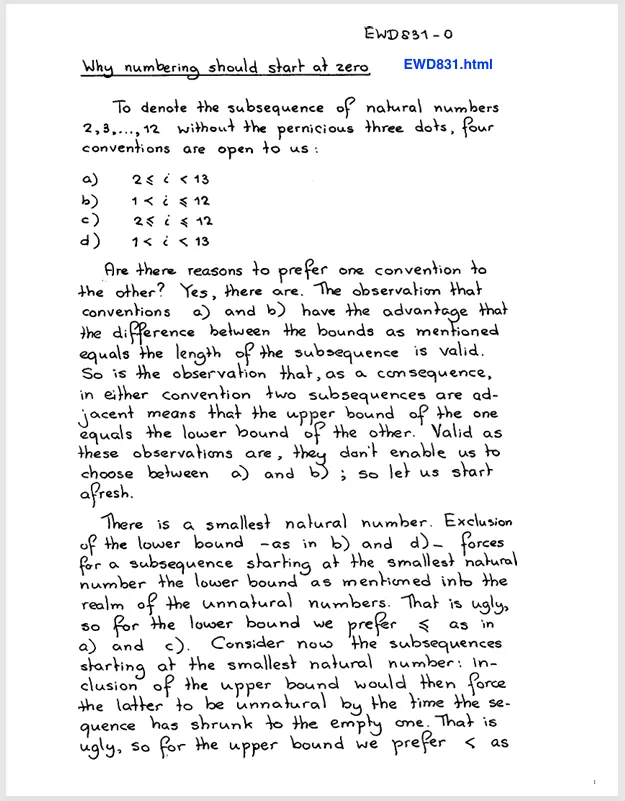 EWD831-0
Why numbering should start at zero EWD831.html
To denote the subsequence of natural numbers
2,3,...,12 without the pernicious three dots, four
conventions are open to us:
a) 2 ≤ i < 13
b) 1 < i ≤ 12
c) 2 ≤ i ≤ 12
d) 1 < i < 13
Are there reasons to prefer one convention to
the other? Yes, there are. The observation that
conventions a) and b) have the advantage that
the difference between the bounds as mentioned
equals the length of the subsequence is valid.
So is the observation that, as a consequence,
in either convention two subsequences are ad-
jacent means that the upper bound of the one
equals the lower bound of the other. Valid as
these observations are, they don't enable us to
choose between a) and b); so let us start
afresh.
There is a smallest natural number. Exclusion
of the lower bound -as in b) and d)- forces
for a subsequence starting at the smallest natural
number the lower bound as mentioned into the
realm of the unnatural numbers. That is ugly,
so for the lower bound we prefer ≤ as in
a) and c). Consider now the subsequences
starting at the smallest natural number: in-
clusion of the upper bound would then force
the latter to be unnatural by the time the se-
quence has shrunk to the empty one. That is
ugly, so for the upper bound we prefer < as
1